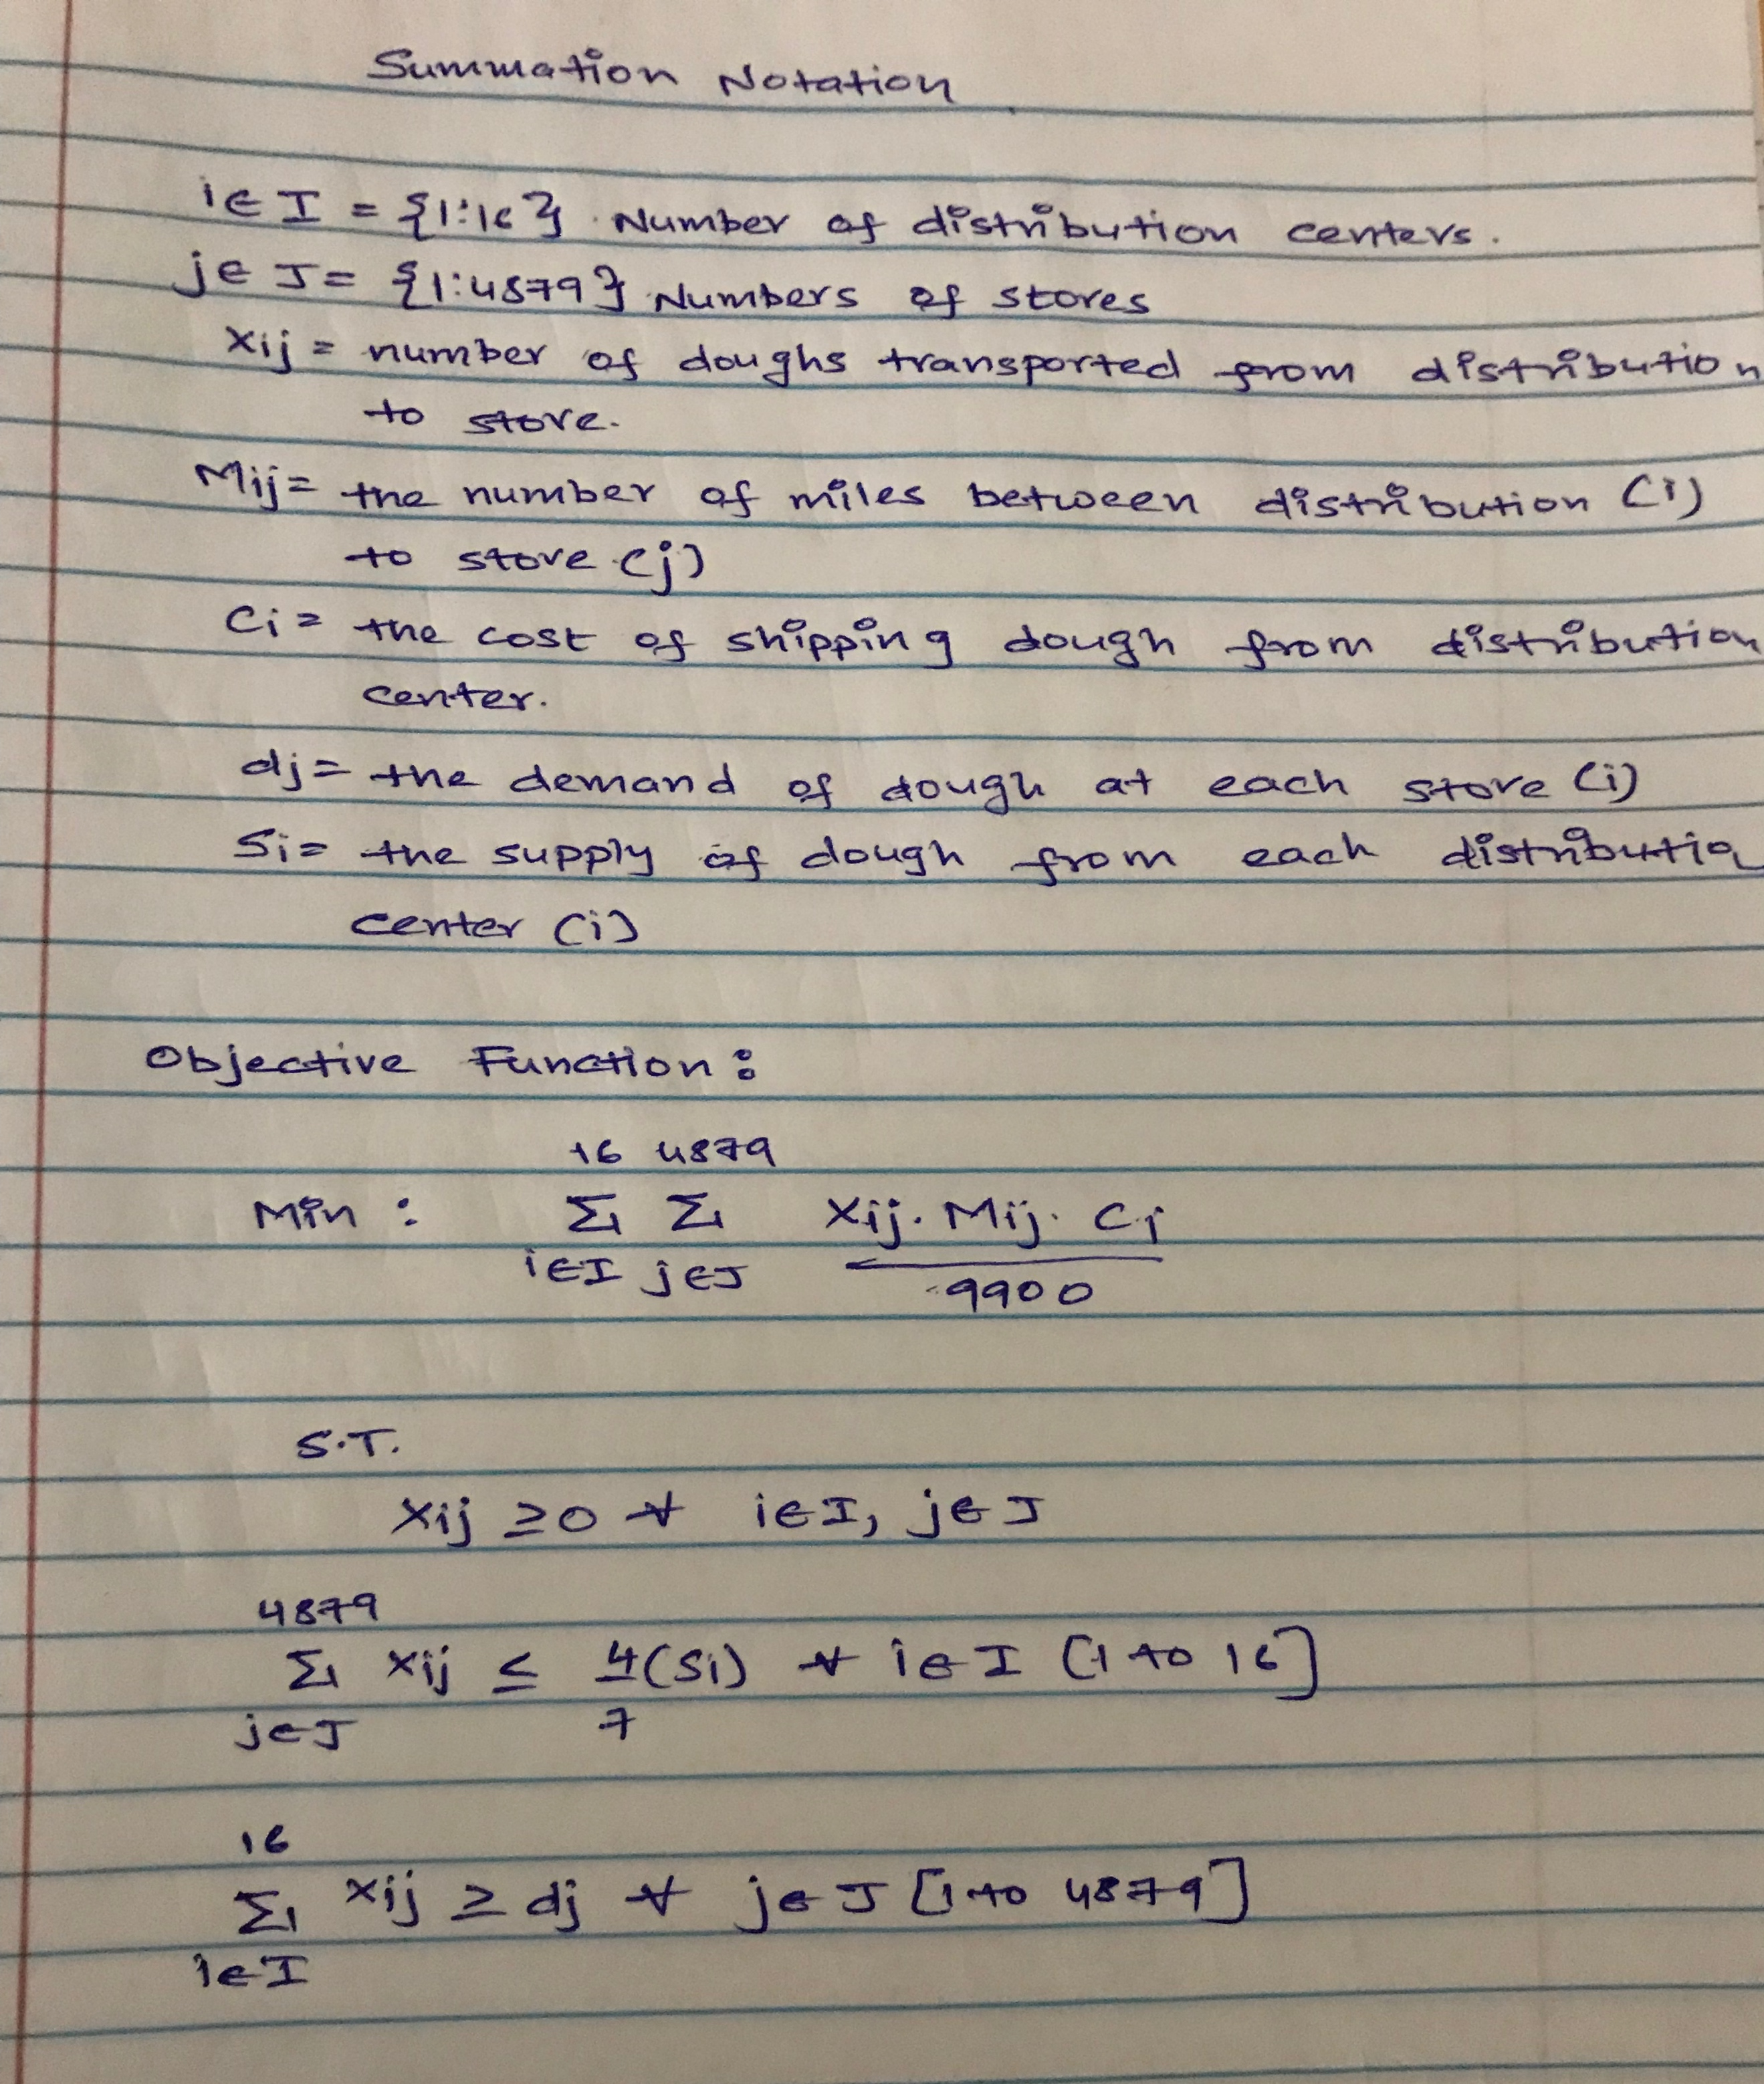 Summation Notation
i∈I = {1:16} Number of distribution centers.
j∈J = {1:4879} Numbers of stores
Xij = number of doughs transported from distribution
to store.
Mij = the number of miles between distribution (i)
to store (j)
Ci = the cost of shipping dough from distribution
center.
dj = the demand of dough at each store (i)
Si = the supply of dough from each distributio
center (i)
Objective Function:
16 4879
Min : Σ Σ Xij. Mij. Ci
i∈I j∈J 9900
S.T.
Xij ≥ 0 ∀ i∈I, j∈J
4879
Σ Xij ≤ 4(Si) ∀ i∈I [1 to 16]
j∈J 7
16
Σ Xij ≥ dj ∀ j∈J [1 to 4879]
i∈I